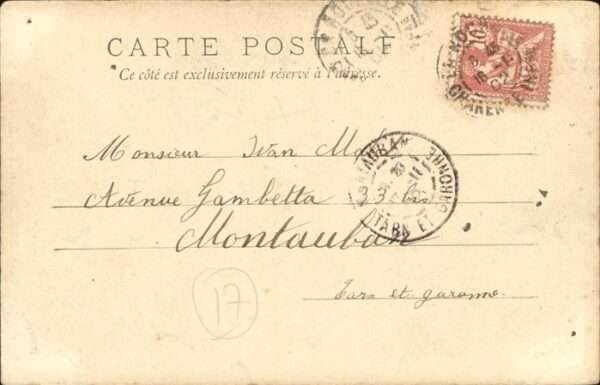 CARTE POSTALE
Ce côté est exclusivement réservé à l'adresse.
10
CHAREN
MONTAUBAN
TARN ET GARONNE
Monsieur Ivan
Avenue Gambetta 33 bis
Montauban
Tarn et garonne.
17